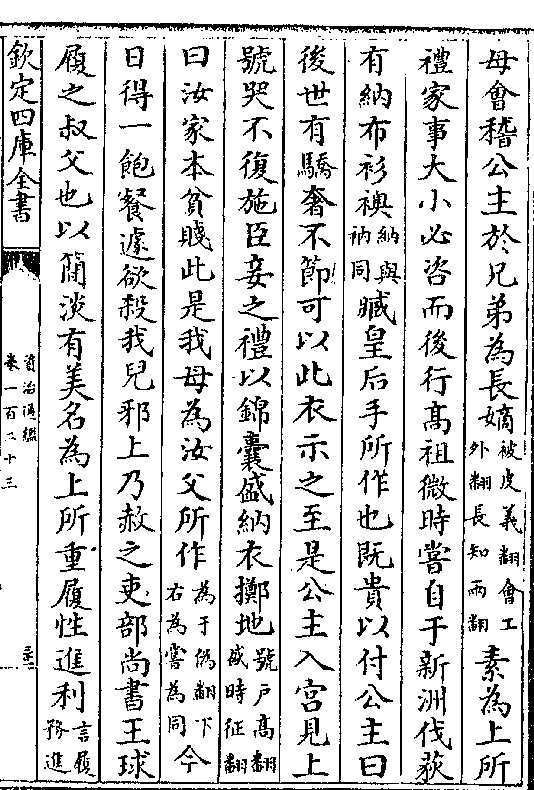 母會稽公主於兄弟為長嫡被皮義翻會工外翻長知兩翻素為上所
禮家事大小必咨而後行高祖微時嘗自于新洲伐荻
有納布衫襖納與衲同臧皇后手所作也既貴以付公主曰
後世有驕奢不節可以此衣示之至是公主入宮見上
號哭不復施臣妾之禮以錦囊盛納衣擲地號戶高翻盛時征翻
曰汝家本貧賤此是我母為汝父所作為于偽翻下右為寧為同今
日得一飽餐遽欲殺我兒邪上乃赦之吏部尚書王球
履之叔父也以簡淡有美名為上所重履性進利言履務進
欽定四庫全書
資治通鑑
卷一百二十三